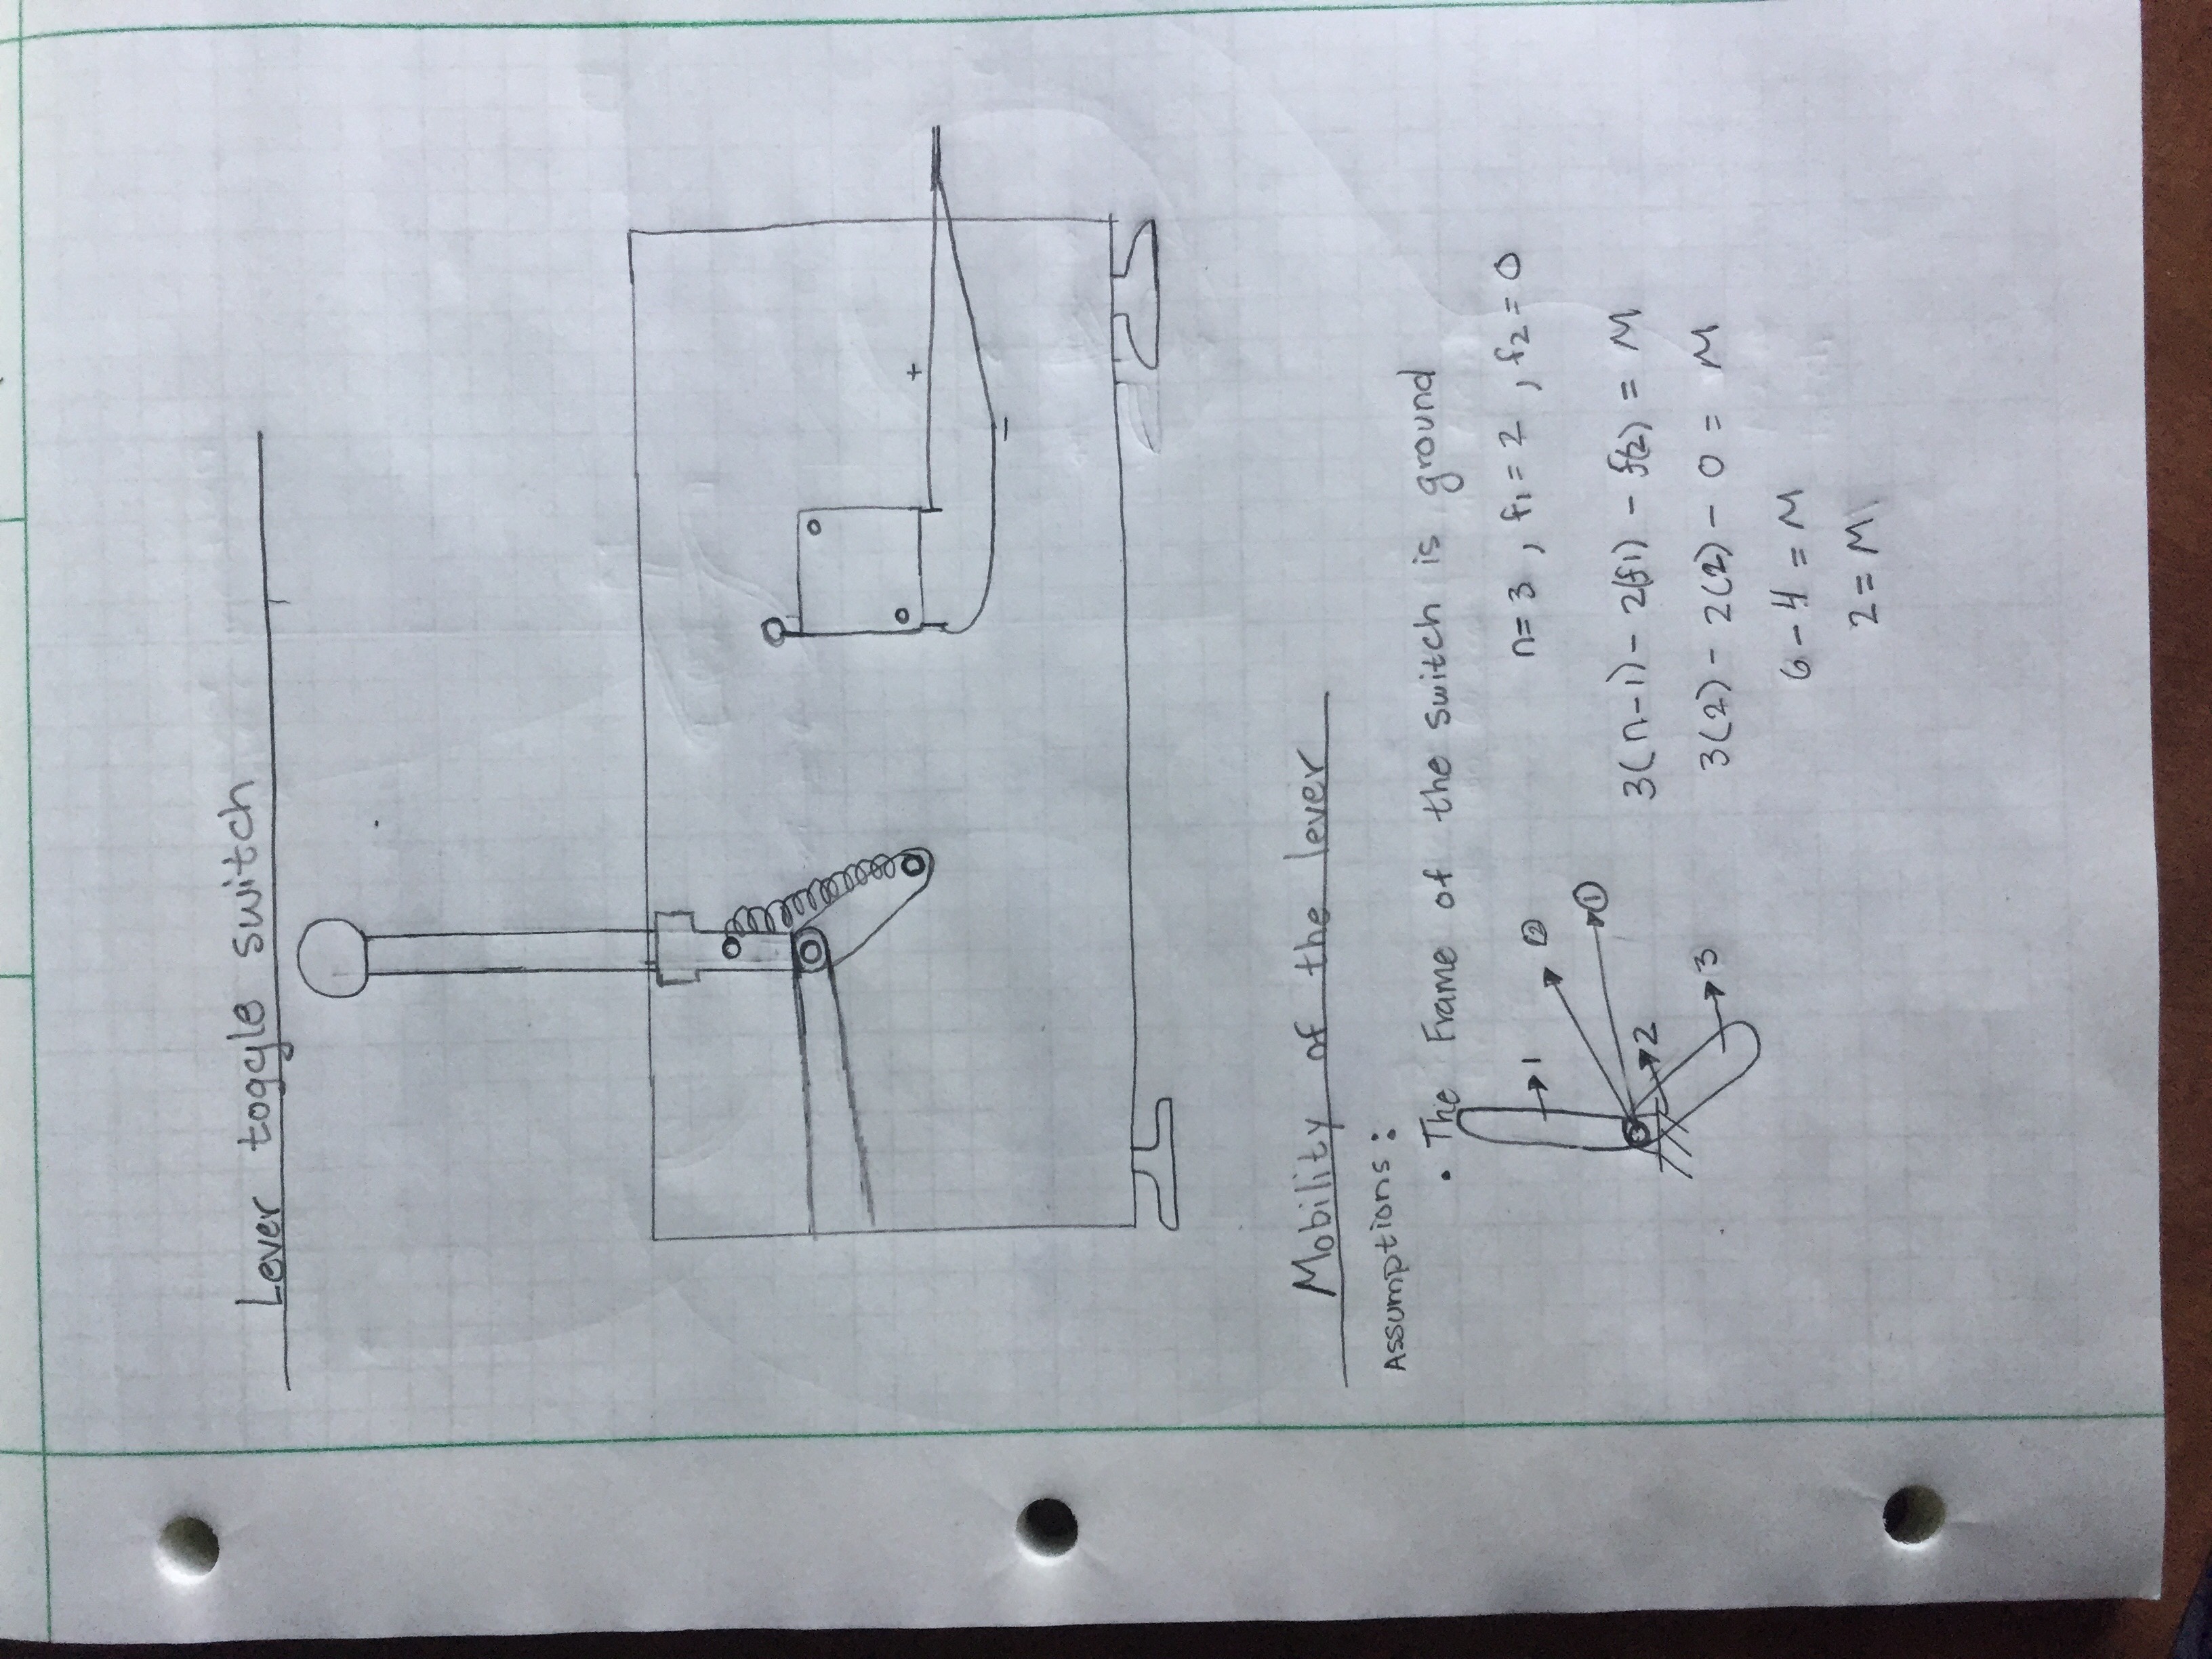 Lever toggle switch
+
−
Mobility of the lever
Assumptions:
• The Frame of the switch is ground
n=3 , f1=2 , f2=0
1
②
①
2
3
3(n-1) - 2(f1) - f(2) = M
3(2) - 2(2) - 0 = M
6-4 = M
2 = M